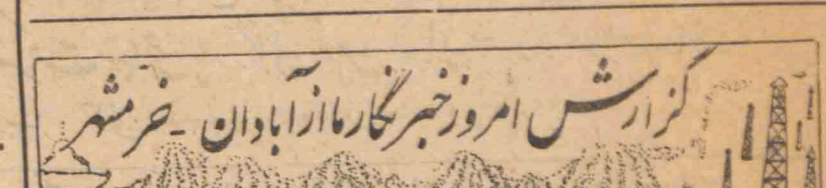 گزارش امروز خبرنگار ما از آبادان - خرمشهر